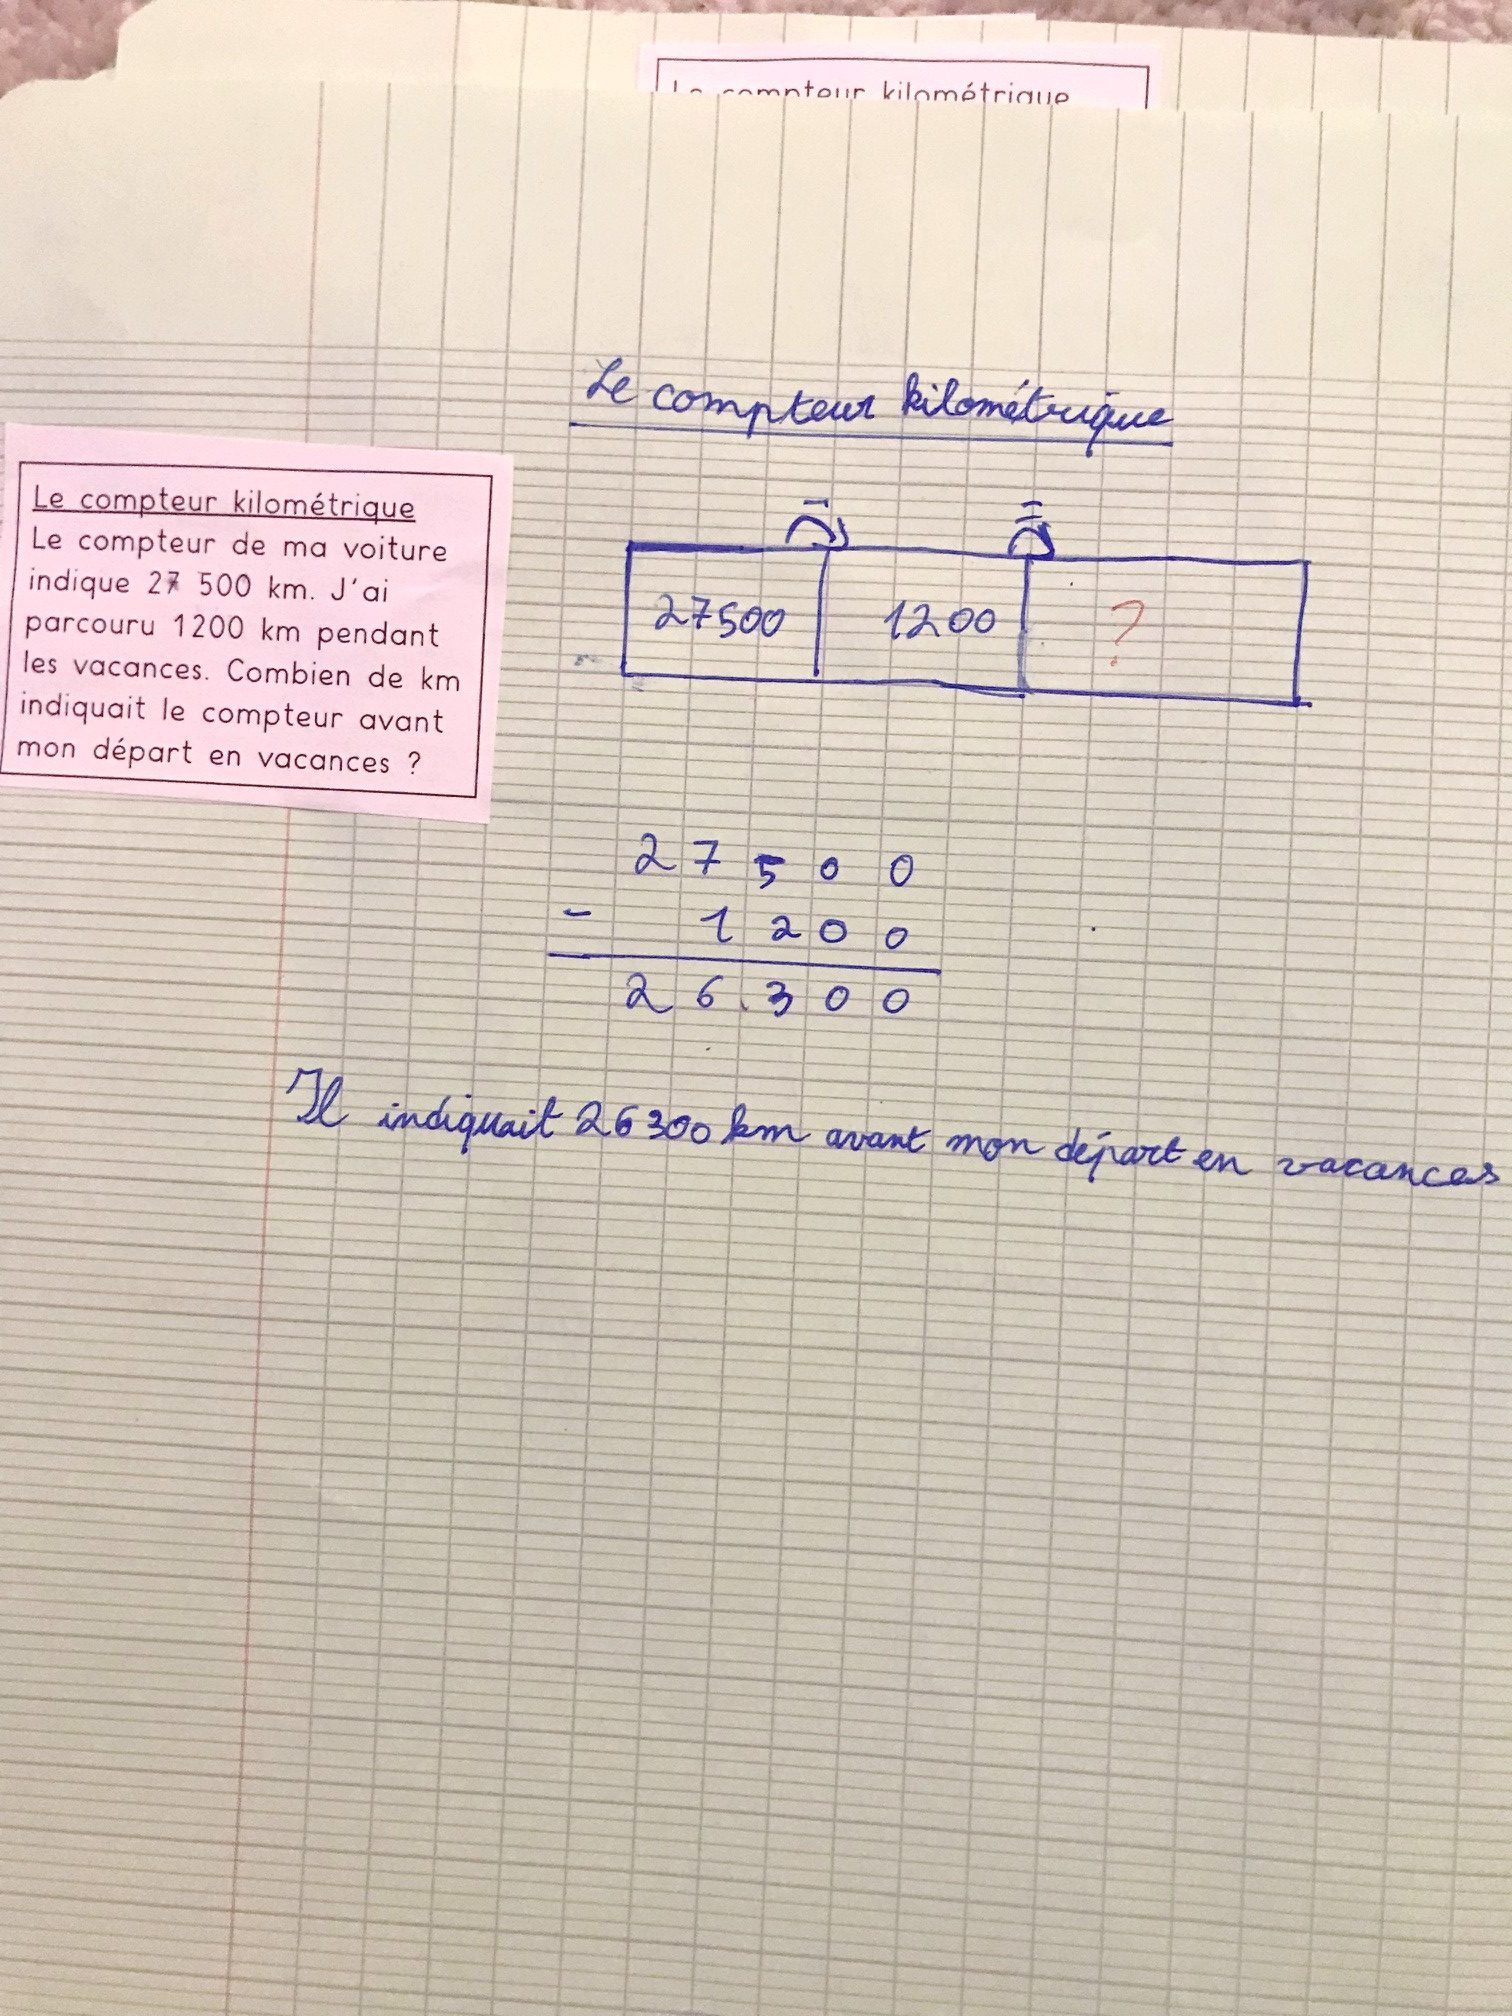 Le compteur kilométrique
Le compteur kilométrique
Le compteur kilométrique
Le compteur de ma voiture
indique 27 500 km. J'ai
parcouru 1200 km pendant
les vacances. Combien de km
indiquait le compteur avant
mon départ en vacances ?
- =
27500 1200 ?
2 7 5 0 0
- 1 2 0 0
2 6 3 0 0
Il indiquait 26300 km avant mon départ en vacances